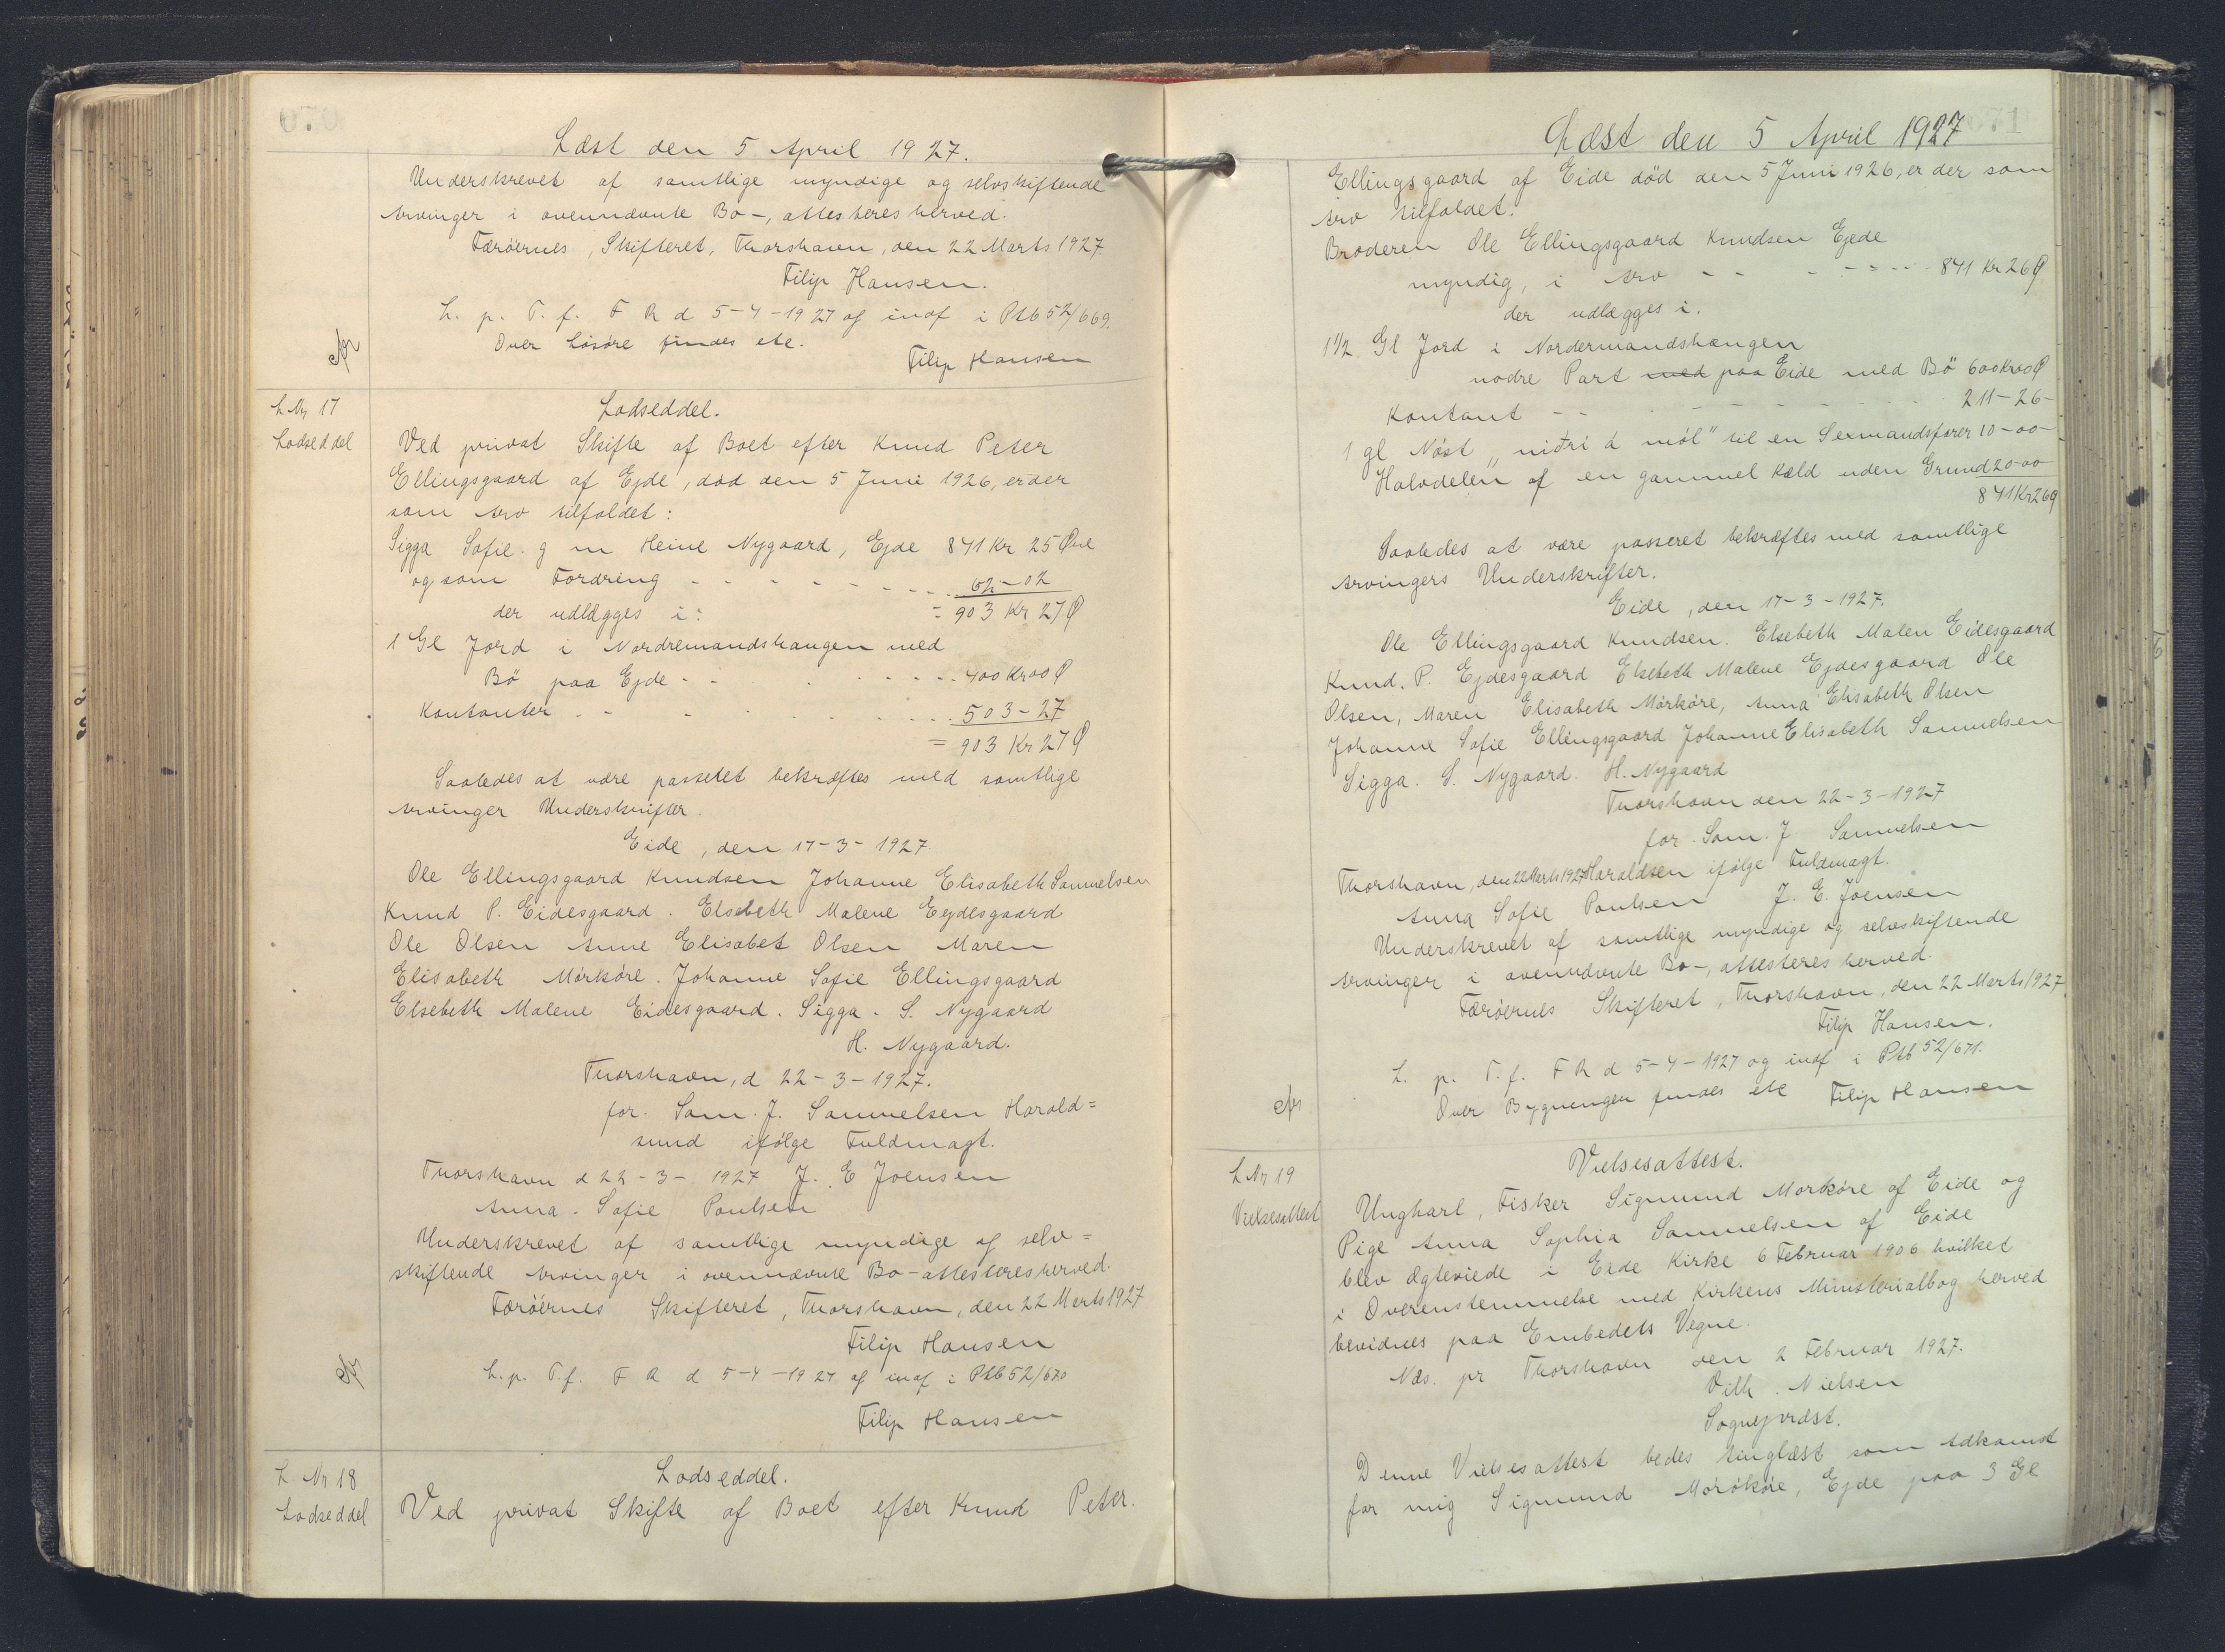 070
Læst den 5 April 1927.
Underskrevet af samtlige myndige og selvskiftende
Arvinger i ovennævnte Bo-, attesteres herved.
Færöernes, Skifteret, Thorshavn, den 22 Marts 1927.
Filip Hansen.
L. p. T. f. F R d 5-4-1927 og indf i Ptb 52/669.
Over Lösöre findes etc.
Filip Hansen
L Nr 17
Lodseddel
Lodseddel.
Ved privat Skifte af Boet efter Knud Peter
Ellingsgaard af Ejde, död den 5 Juni 1926, er der
som Arv tilfaldet:
Sigga Sofie g m Heine Nygaard, Ejde 841 Kr 25 Øre
og som Fordring - - - - - - - - 62-02
der udlægges i: = 903 Kr 27 Ø
1 Gl Jord i Nordremandshaugen med
Bö paa Ejde - - - - - - 400 Kr 00 Ø
Kontanter - - - - - - 503-27
= 903 Kr 27 Ø
Saaledes at være passetet bekræftes med samtlige
Arvinger Underskrifter.
Eide, den 17-3-1927.
Ole Ellingsgaard Knudsen Johanne Elisabeth Samuelsen
Knud P. Eidesgaard. Elsebeth Malene Eydesgaard
Ole Olsen Anne Elisabet Olsen Maren
Elisabeth Mörköre. Johanne Sofie Ellingsgaard
Elsebeth Malene Eidesgaard. Sigga. S. Nygaard
H. Nygaard.
Thorshavn, d 22-3-1927.
for. Sam. J. Samuelsen Harald=
sund ifölge Fuldmagt.
Thorshavn d 22-3-1927 J. E Joensen
Anna. Sofie Poulsen
Underskrevet af samtlige myndige og selv=
skiftende Arvinger i ovennævnte Bo-attesteres herved.
Færöernes Skifteret, Thorshavn, den 22 Marts 1927
Filip Hansen
L. p. T. f. F R d 5-4-1927 og indf i Ptb 52/670
Filip Hansen
L Nr 18
Lodseddel
Lodseddel.
Ved privat Skifte af Boet efter Knud Peter.
671
Læst den 5 April 1927
Ellingsgaard af Eide död den 5 Juni 1926, er der som
Arv tilfaldet.
Broderen Ole Ellingsgaard Knudsen Ejde
myndig, i Arv - - - - - - 841 Kr 26 Ø
der udlægges i.
1 1/2 Gl Jord i Nordermandshængen
nodre Part med paa Eide med Bö 600 Kr 00 Ø
Kontant - - - - - - 211-26-
1 gl Nöst „niðri á möl" til en Sexmandsfarer 10-00-
Halvdelen af en gammel Kæld uden Grund 20-00
841 Kr 26 Ø
Saaledes at være passeret bekræftes med samtlige
Arvingers Underskrifter.
Eide, den 17-3-1927.
Ole Ellingsgaard Knudsen. Elsebeth Malen Eidesgaard
Knud. P. Ejdesgaard Elsebeth Malene Ejdesgaard Ole
Olsen, Maren Elisabeth Mörköre, Anna Elisabeth Olsen
Johanne Sofie Ellingsgaard Johanne Elisabeth Samuelsen
Sigga. S. Nygaard. H. Nygaard
Thorshavn den 22-3-1927
for. Sam. J. Samuelsen
Thorshavn, den 22 Marts 1927 Haraldsen ifölge Fuldmagt.
Anna Sofie Poulsen J. E. Joensen
Underskrevet af samtlige myndige og selvskiftende
Arvinger i ovennævnte Bo-, attesteres herved.
Færöernes Skifteret, Thorshavn, den 22 Marts 1927.
Filip Hansen.
L. p. T. f. F R d 5-4-1927 og indf i Ptb 52/671.
Over Bygningen findes etc Filip Hansen
L Nr 19
Vielsesattest
Vielsesattest.
Ungkarl, Fisker Sigmund Morköre af Eide og
Pige Anna Sophia Samuelsen af Eide
blev Ægteviede i Eide Kirke 6 Februar 1906 hvilket
i Overenstemmelse med Kirkens Ministerialbog herved
bevidnes paa Embedets Vegne.
Næs. pr Thorshavn den 2 Februar 1927.
Vilh. Nielsen
Sognepræst.
Denne Vielsesattest bedes tinglæst som Adkomst
for mig Sigmund Morökóre, Ejde paa 3 Gl